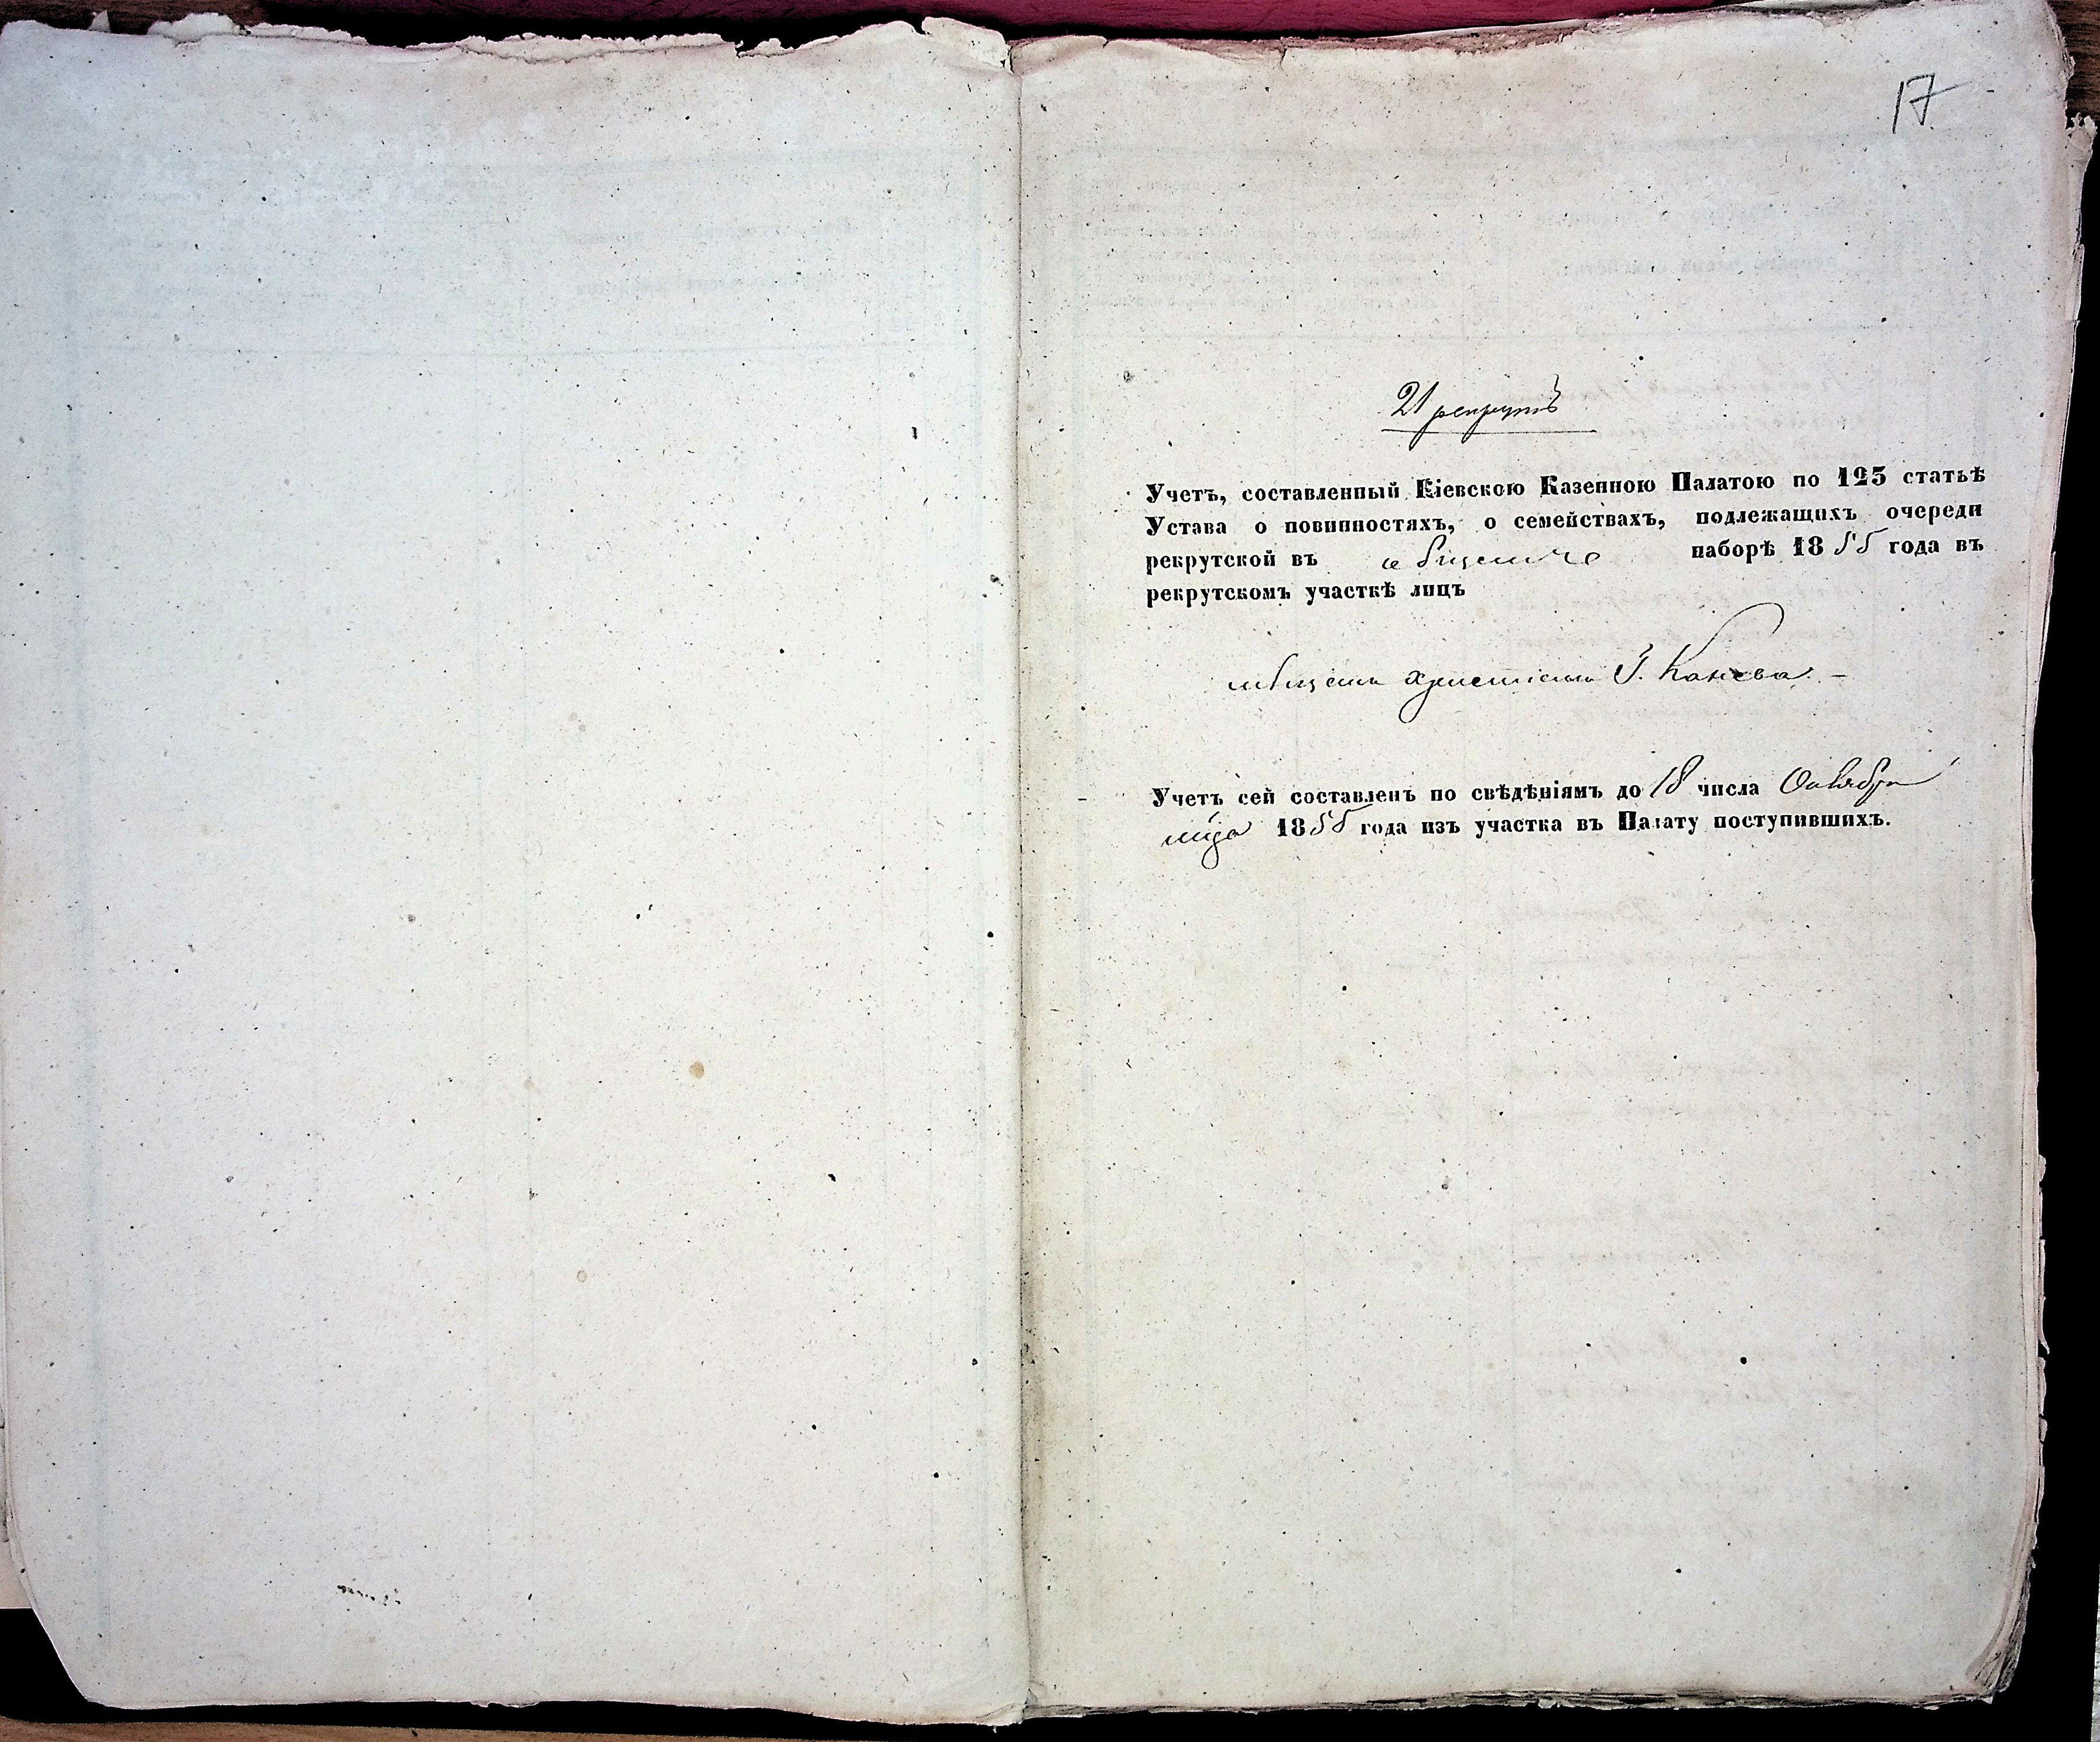 17
21 рекрутъ
Учетъ, составленный Кіевскою Казенною Палатою по 125 статьѣ
Устава о повинностяхъ, о семействахъ, подлежащихъ очереди
рекрутской въ наборѣ 1855 года въ
рекрутскомъ участкѣ лицъ
мѣщанъ христіанъ Г. Канева. —
Учетъ сей составленъ по свѣдѣніямъ до 18 числа Октября
мца 1855 года изъ участка въ Палату поступившихъ.